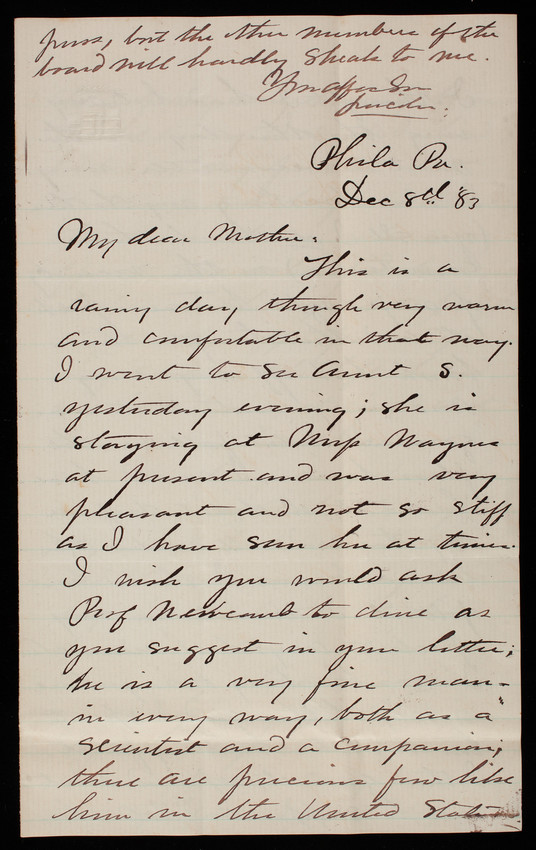 puss, but the other members of the
board will hardly speak to me.
Yr affec Son
Lincoln.
Phila Pa.
Dec 8th '83
My dear Mother:
This is a
rainy day, though very warm
and comfortable in that way.
I went to see Aunt S.
yesterday evening; she is
staying at Miss Waynes
at present and was very
pleasant and not so stiff
as I have seen her at times.
I wish you would ask
Prof Newcomb to dine as
you suggest in your letter;
he is a very fine man-
in every way, both as a
scientist and a companion;
there are precious few like
him in the United States